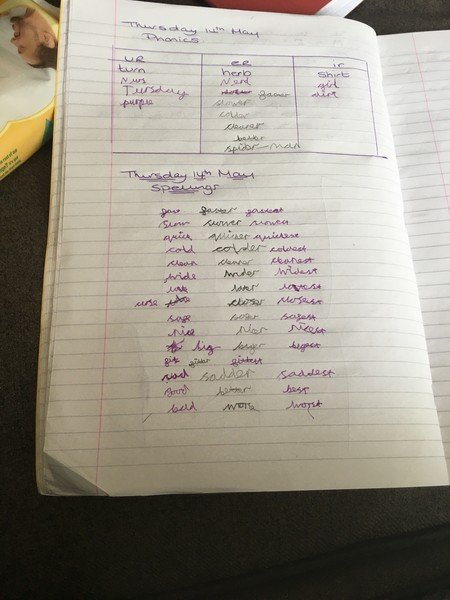 Thursday 14th May
Phonics
ur er ir
turn herb Shirt
Nurs Nerd girl
Tursday faster dirt
purple slower
colder
cleaner
better
spider-man
Thursday 14th May
Spellings
fast faster fastest
Slow slower slowest
quick quicker quickest
cold colder coldest
clean cleaner cleanest
wide wider widest
late later
closer closest
safe safer safest
nice nicer nicest
big biger bigest
sad sadder saddest
Good better best
bad worse worst